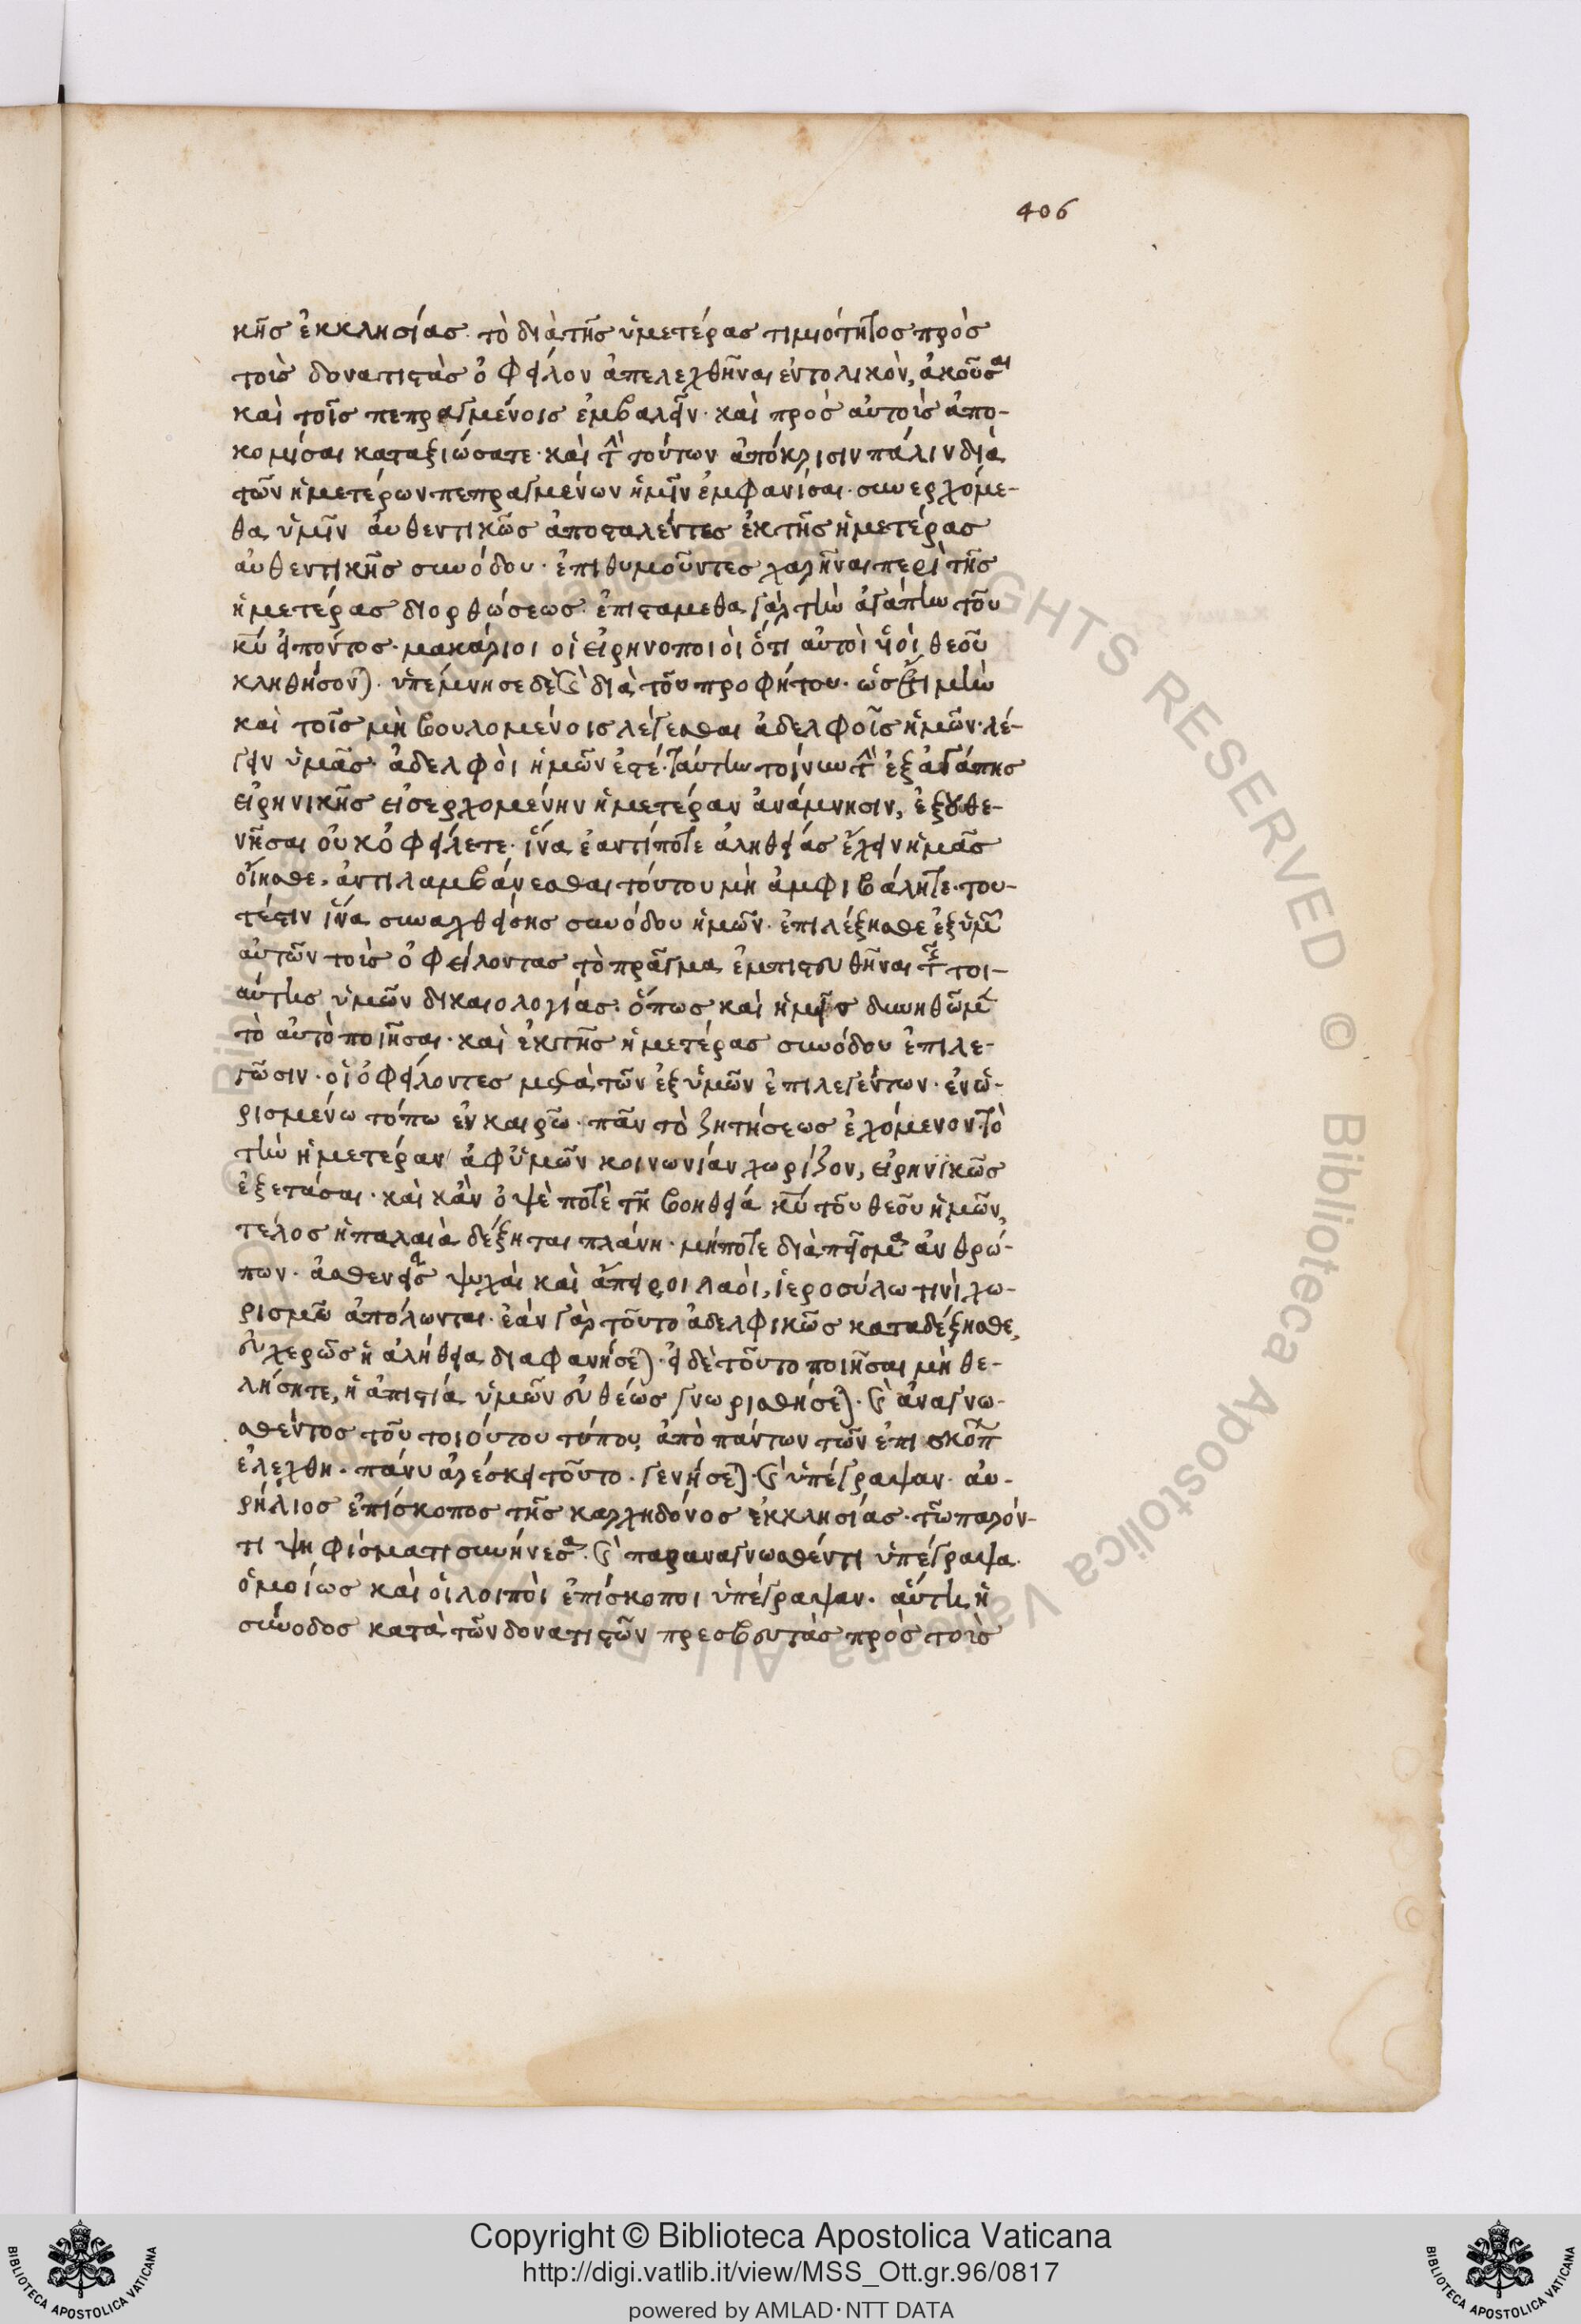 406
κῆς ἐκκλησίας. τὸ διὰ τῆς ὑμετέρας τιμιότητος πρὸς
τοὺς δονατιστὰς ὀφεῖλον ἀπελεχθῆναι ἐντολικὸν, ἀκοῦσαι
καὶ τοῖς πεπραγμένοις ἐμβαλεῖν· καὶ πρὸς αὐτοὺς ἀπο-
κομίσαι καταξιώσατε· καὶ τὴν τούτων ἀπόκρισιν πάλιν διὰ
τῶν ἡμετέρων πεπραγμένων ἡμῖν ἐμφανίσαι. συνερχόμε-
θα ὑμῖν αὐθεντικῶς ἀποσταλέντες ἐκ τῆς ἡμετέρας
αὐθεντικῆς συνόδου· ἐπιθυμοῦντες χαρῆναι περὶ τῆς
ἡμετέρας διορθώσεως. ἐπιστάμεθα γὰρ τὴν ἀγάπην τοῦ
κυ εἰπόντος· μακάριοι οἱ εἰρηνοποιοὶ ὅτι αὐτοὶ υἱοὶ θεοῦ
κληθήσονται. ὑπέμνησε δὲ καὶ διὰ τοῦ προφήτου· ὥστε ἡμῖν
καὶ τοῖς μὴ βουλομένοις λέγεσθαι ἀδελφοῖς ἡμῶν· λέ-
γειν ὑμᾶς· ἀδελφοὶ ἡμῶν ἐστέ. ταύτην τοίνυν τὴν ἐξ ἀγάπης
εἰρηνικῆς εἰσερχομένην ἡμετέραν ἀνάμνησιν, ἐξουθε-
νῆσαι οὐκ ὀφείλετε· ἵνα ἐάν τί ποτε ἀληθείας ἔχειν ἡμᾶς
οἴησθε, ἀντιλαμβάνεσθαι τούτου μὴ ἀμφιβάλητε· του-
τέστιν ἵνα συναχθείσης συνόδου ἡμῶν· ἐπιλέξησθε ἐξ ὑμῶν
αὐτῶν τοὺς ὀφείλοντας τὸ πρᾶγμα ἐμπιστευθῆναι τῆς τοι-
αύτης ὑμῶν δικαιολογίας· ὅπως καὶ ἡμεῖς δυνηθῶμεν
τὸ αὐτὸ ποιῆσαι· καὶ ἐκ τῆς ἡμετέρας συνόδου ἐπιλε-
γῶσιν· οἱ ὀφείλοντες μετὰ τῶν ἐξ ὑμῶν ἐπιλεγέντων· ἐν ὡ-
ρισμένω τόπω ἐν καιρῶ· πᾶν τὸ ζητήσεως ἐχόμενον. τὸ
τὴν ἡμετέραν ἀφ' ὑμῶν κοινωνίαν χωρίζον, εἰρηνικῶς
ἐξετάσαι· καὶ κἂν ὀψὲ ποτὲ τῆ βοηθεία κυ τοῦ θεοῦ ἡμῶν,
τέλος ἡ παλαιὰ δέξηται πλάνη· μήποτε διὰ πεῖσμα ἀνθρώ-
πων· ἀσθενεῖς ψυχαὶ καὶ ἄπειροι λαοὶ, ἱεροσύλω τινὶ χω-
ρισμῶ ἀπόλωνται. ἐὰν γὰρ τοῦτο ἀδελφικῶς καταδέξησθε,
εὐχερῶς ἡ ἀλήθεια διαφανήσεται. εἰ δὲ τοῦτο ποιῆσαι μὴ θε-
λήσητε, ἡ ἀπιστία ὑμῶν εὐθέως γνωρισθήσεται. καὶ ἀναγνω-
σθέντος τοῦ τοιούτου τύπου ἀπὸ πάντων τῶν ἐπισκόπ
ἐλέχθη· πάνυ ἀρέσκει τοῦτο. γενήσεται. καὶ ὑπέγραψαν. αὐ-
ρήλιος ἐπίσκοπος τῆς καρχηδόνος ἐκκλησίας· τῶ παρόν-
τι ψηφίσματι συνήνεσα. καὶ παραναγνωσθέντι ὑπέγραψα.
ὁμοίως καὶ οἱ λοιποὶ ἐπίσκοποι ὑπέγραψαν. αὕτη ἡ
σύνοδος κατὰ τῶν δονατιστῶν πρεσβευτὰς πρὸς τοὺς
Copyright © Biblioteca Apostolica Vaticana
http://digi.vatlib.it/view/MSS_Ott.gr.96/0817
powered by AMLAD·NTT DATA